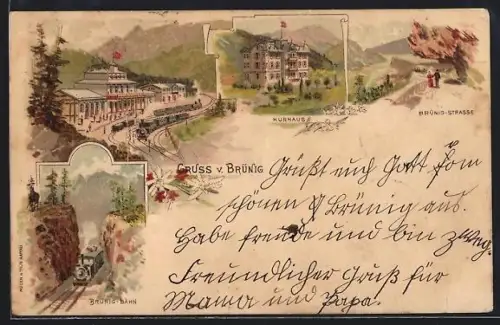 KURHAUS
BRÜNIG-STRASSE
GRUSS v. BRÜNIG
Grüßt euch Gott fom
schönen Brünig aus.
Habe freude und bin zweg.
Freundlicher Gruß für
Mama und Papa.
BRÜNIG-BAHN